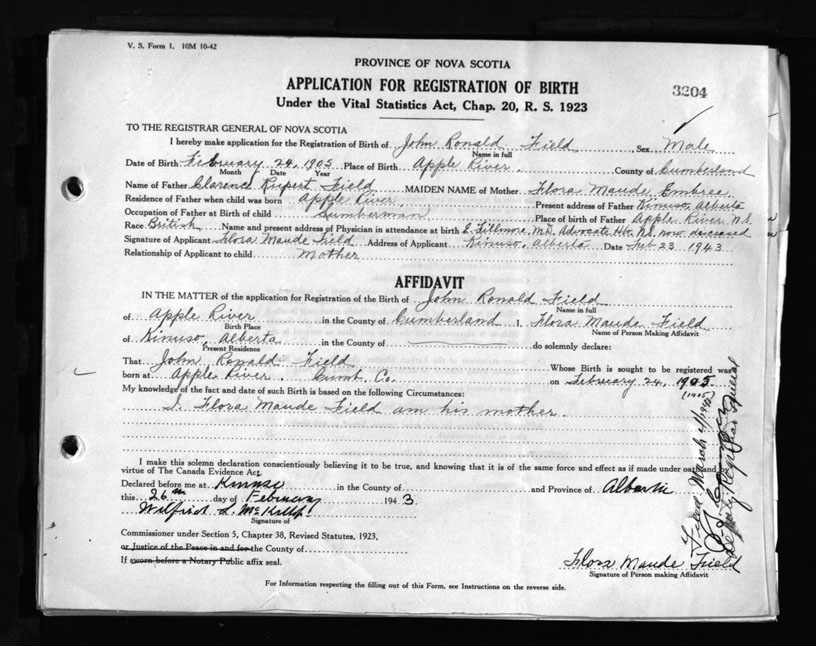 V. S. Form 1. 10M 10-42
PROVINCE OF NOVA SCOTIA
APPLICATION FOR REGISTRATION OF BIRTH
3204
Under the Vital Statistics Act, Chap. 20, R. S. 1923
TO THE REGISTRAR GENERAL OF NOVA SCOTIA
I hereby make application for the Registration of Birth of John Ronald Field Sex Male
Name in full
Date of Birth February 24, 1905 Place of Birth Apple River. County of Cumberland
Month Date Year
Name of Father Clarence Rupert Field MAIDEN NAME of Mother Flora Maude Embree
Residence of Father when child was born Apple River. Present address of Father Kinuso, Alberta
Occupation of Father at Birth of child Lumberman Place of birth of Father Apple River N.S.
Race British Name and present address of Physician in attendance at birth E. Fillmore, M.D. Advocate Hbr. N.S. now deceased
Signature of Applicant Flora Maude Field Address of Applicant Kinuso, Alberta Date Feb 23 1943
Relationship of Applicant to child Mother
AFFIDAVIT
IN THE MATTER of the application for Registration of the Birth of John Ronald Field
Name in full
of Apple River in the County of Cumberland I, Flora Maude Field
Birth Place Name of Person Making Affidavit
of Kinuso, Alberta in the County of do solemnly declare:
Present Residence
That John Ronald Field Whose Birth is sought to be registered was
born at Apple River. Cumb. Co. on February 24, 1905.
(1905)
My knowledge of the fact and date of such Birth is based on the following Circumstances:
I, Flora Maude Field am his mother.
I make this solemn declaration conscientiously believing it to be true, and knowing that it is of the same force and effect as if made under oath and
virtue of The Canada Evidence Act.
Declared before me at Kinuso in the County of and Province of Alberta
this 26th day of February 1943
Wilfrid L.
Signature of
Commissioner under Section 5, Chapter 38, Revised Statutes, 1923,
or Justice of the Peace in and for the County of
If sworn before a Notary Public affix seal.
Flora Maude Field
Signature of Person making Affidavit
For Information respecting the filling out of this Form, see Instructions on the reverse side.
Filed March
Deputy Registrar General